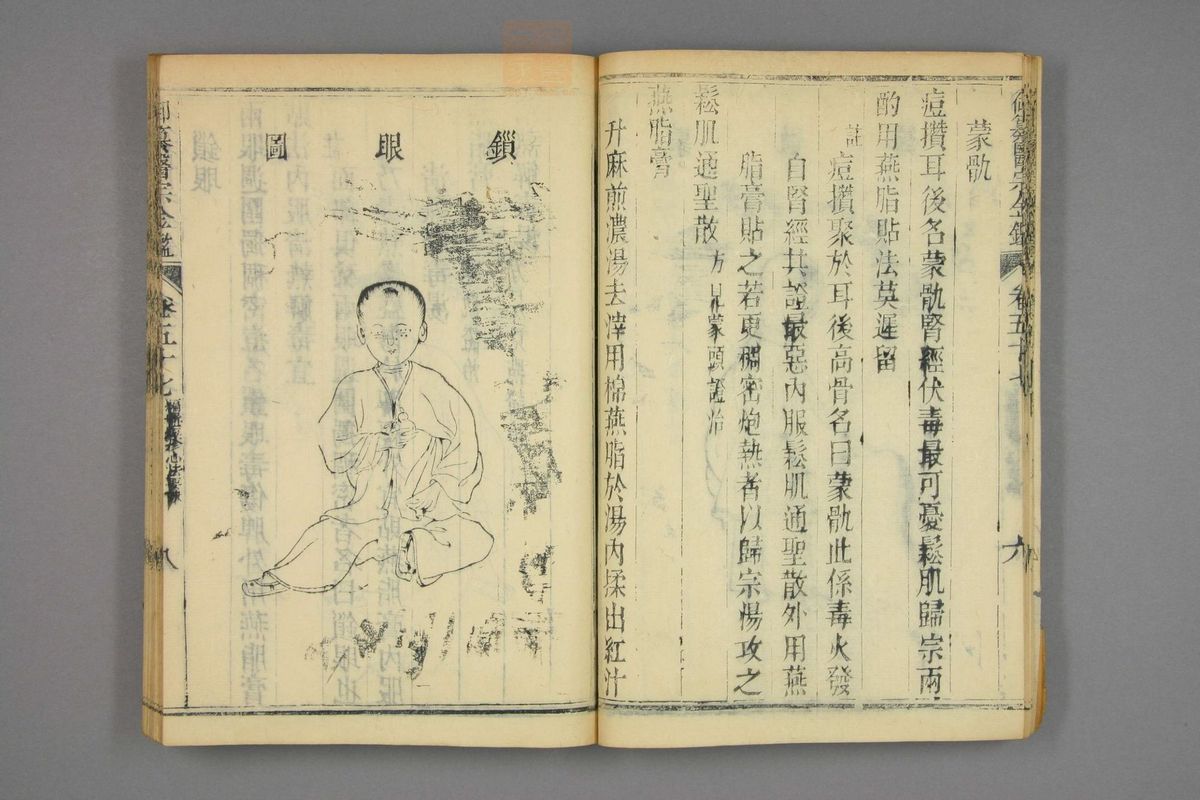 蒙骩
痘攢耳後名蒙骩腎經伏毒最可憂鬆肌歸宗兩
酌用燕脂貼法莫遲留
註痘攢聚於耳後高骨名曰蒙骩此係毒火發
自腎經其證最惡內服鬆肌通聖散外用燕
脂膏貼之若更稠密炮熱者以歸宗湯攻之
鬆肌通聖散方見蒙頭證治
燕脂膏
升麻煎濃湯去滓用棉燕脂於湯內揉出紅汁
鎖眼圖
醫宗金鑑
卷五十七
八